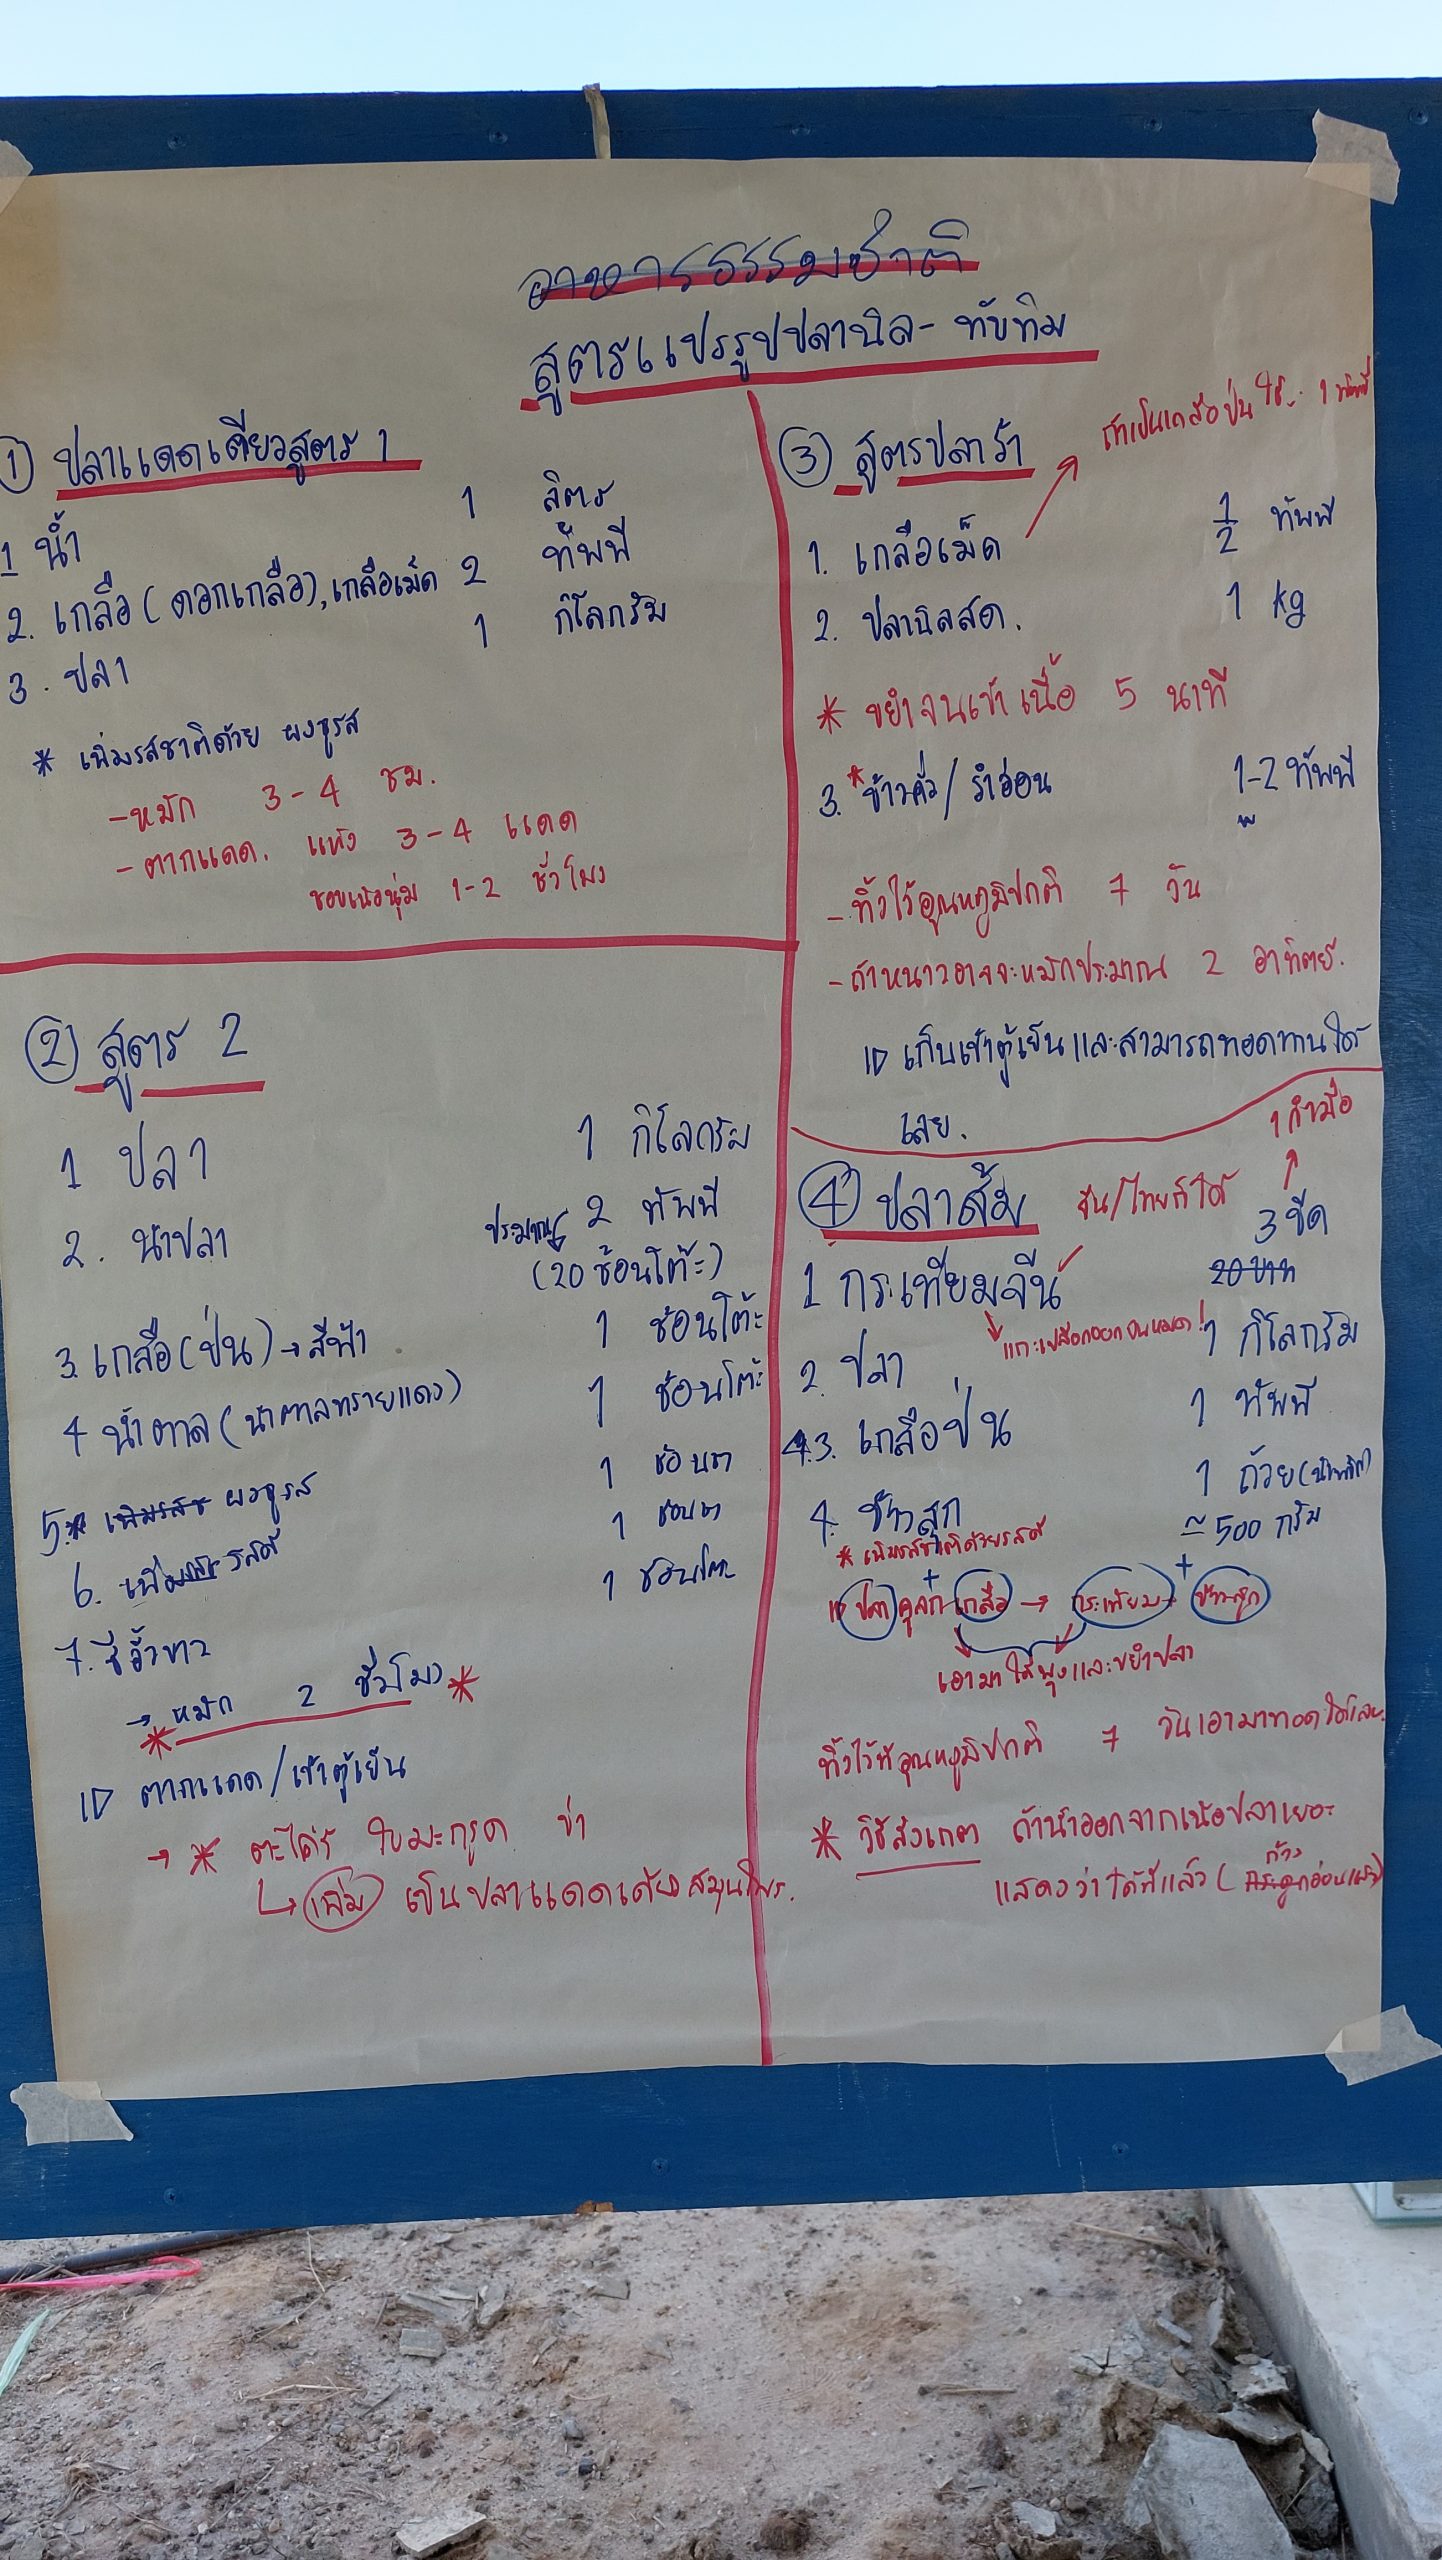 อาหารธรรมชาติ
สูตรแปรรูปปลานิล - ทับทิม
① ปลาแดดเดียวสูตร 1
1 น้ำ 1 ลิตร
2. เกลือ (ดอกเกลือ), เกลือเม็ด 2 ทัพพี
3. ปลา 1 กิโลกรัม
* เพิ่มรสชาติด้วย ผงชูรส
- หมัก 3-4 ชม.
- ตากแดด. แห้ง 3-4 แดด
ชอบเนื้อนุ่ม 1-2 ชั่วโมง
② สูตร 2
1 ปลา 1 กิโลกรัม
2. น้ำปลา ประมาณ 2 ทัพพี
(20 ช้อนโต๊ะ)
3. เกลือ (ป่น) → สีฟ้า 1 ช้อนโต๊ะ
4 น้ำตาล (น้ำตาลทรายแดง) 1 ช้อนโต๊ะ
5.* เพิ่มรสช ผงชูรส 1 ช้อนชา
6. รสดี 1 ช้อนชา
7. ซีอิ๊วขาว 1 ช้อนโต๊ะ
→ * หมัก 2 ชั่วโมง *
ตากแดด/เข้าตู้เย็น
→ * ตะไคร้ ใบมะกรูด ข่า
เพิ่ม เป็นปลาแดดเดียวสมุนไพร.
③ สูตรปลาร้า
ถ้าเป็นเกลือป่น ใช้ 1 ทัพพี
1. เกลือเม็ด 1/2 ทัพพี
2. ปลานิลสด. 1 kg
* ขยำจนเข้าเนื้อ 5 นาที
3. * ข้าวคั่ว / รำอ่อน 1-2 ทัพพี
- ทิ้งไว้อุณหภูมิปกติ 7 วัน
- ถ้าหนาวอาจจะหมักประมาณ 2 อาทิตย์.
เก็บเข้าตู้เย็นและสามารถทอดทานได้
เลย.
④ ปลาส้ม จีน/ไทยก็ได้ 1 กำมือ
1 กระเทียมจีน 3 ขีด
20 บาท
แกะเปลือกออกจนหมด!
2. ปลา 1 กิโลกรัม
3. เกลือป่น 1 ทัพพี
4. ข้าวสุก 1 ถ้วย
≈ 500 กรัม
* เพิ่มรสชาติด้วยรสดี
ปลา คลุก + เกลือ → กระเทียม + ข้าวสุก
เอามาใส่พุงและขยำปลา
ทิ้งไว้ที่อุณหภูมิปกติ 7 วันเอามาทอดได้เลย.
* วิธีสังเกต ถ้าน้ำออกจากเนื้อปลาเยอะ
แสดงว่าได้ที่แล้ว (ก้าง